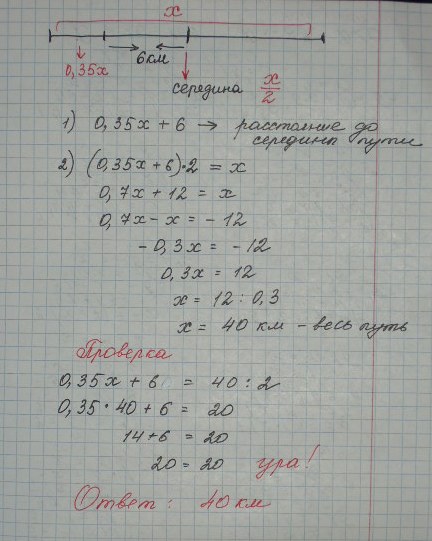 x
0,35x
6 км
середина x/2
1) 0,35x + 6 → расстояние до
середины пути
2) (0,35x + 6)·2 = x
0,7x + 12 = x
0,7x – x = – 12
– 0,3x = – 12
0,3x = 12
x = 12 : 0,3
x = 40 км – весь путь
Проверка
0,35x + 6 = 40 : 2
0,35 · 40 + 6 = 20
14 + 6 = 20
20 = 20 ура!
Ответ : 40 км